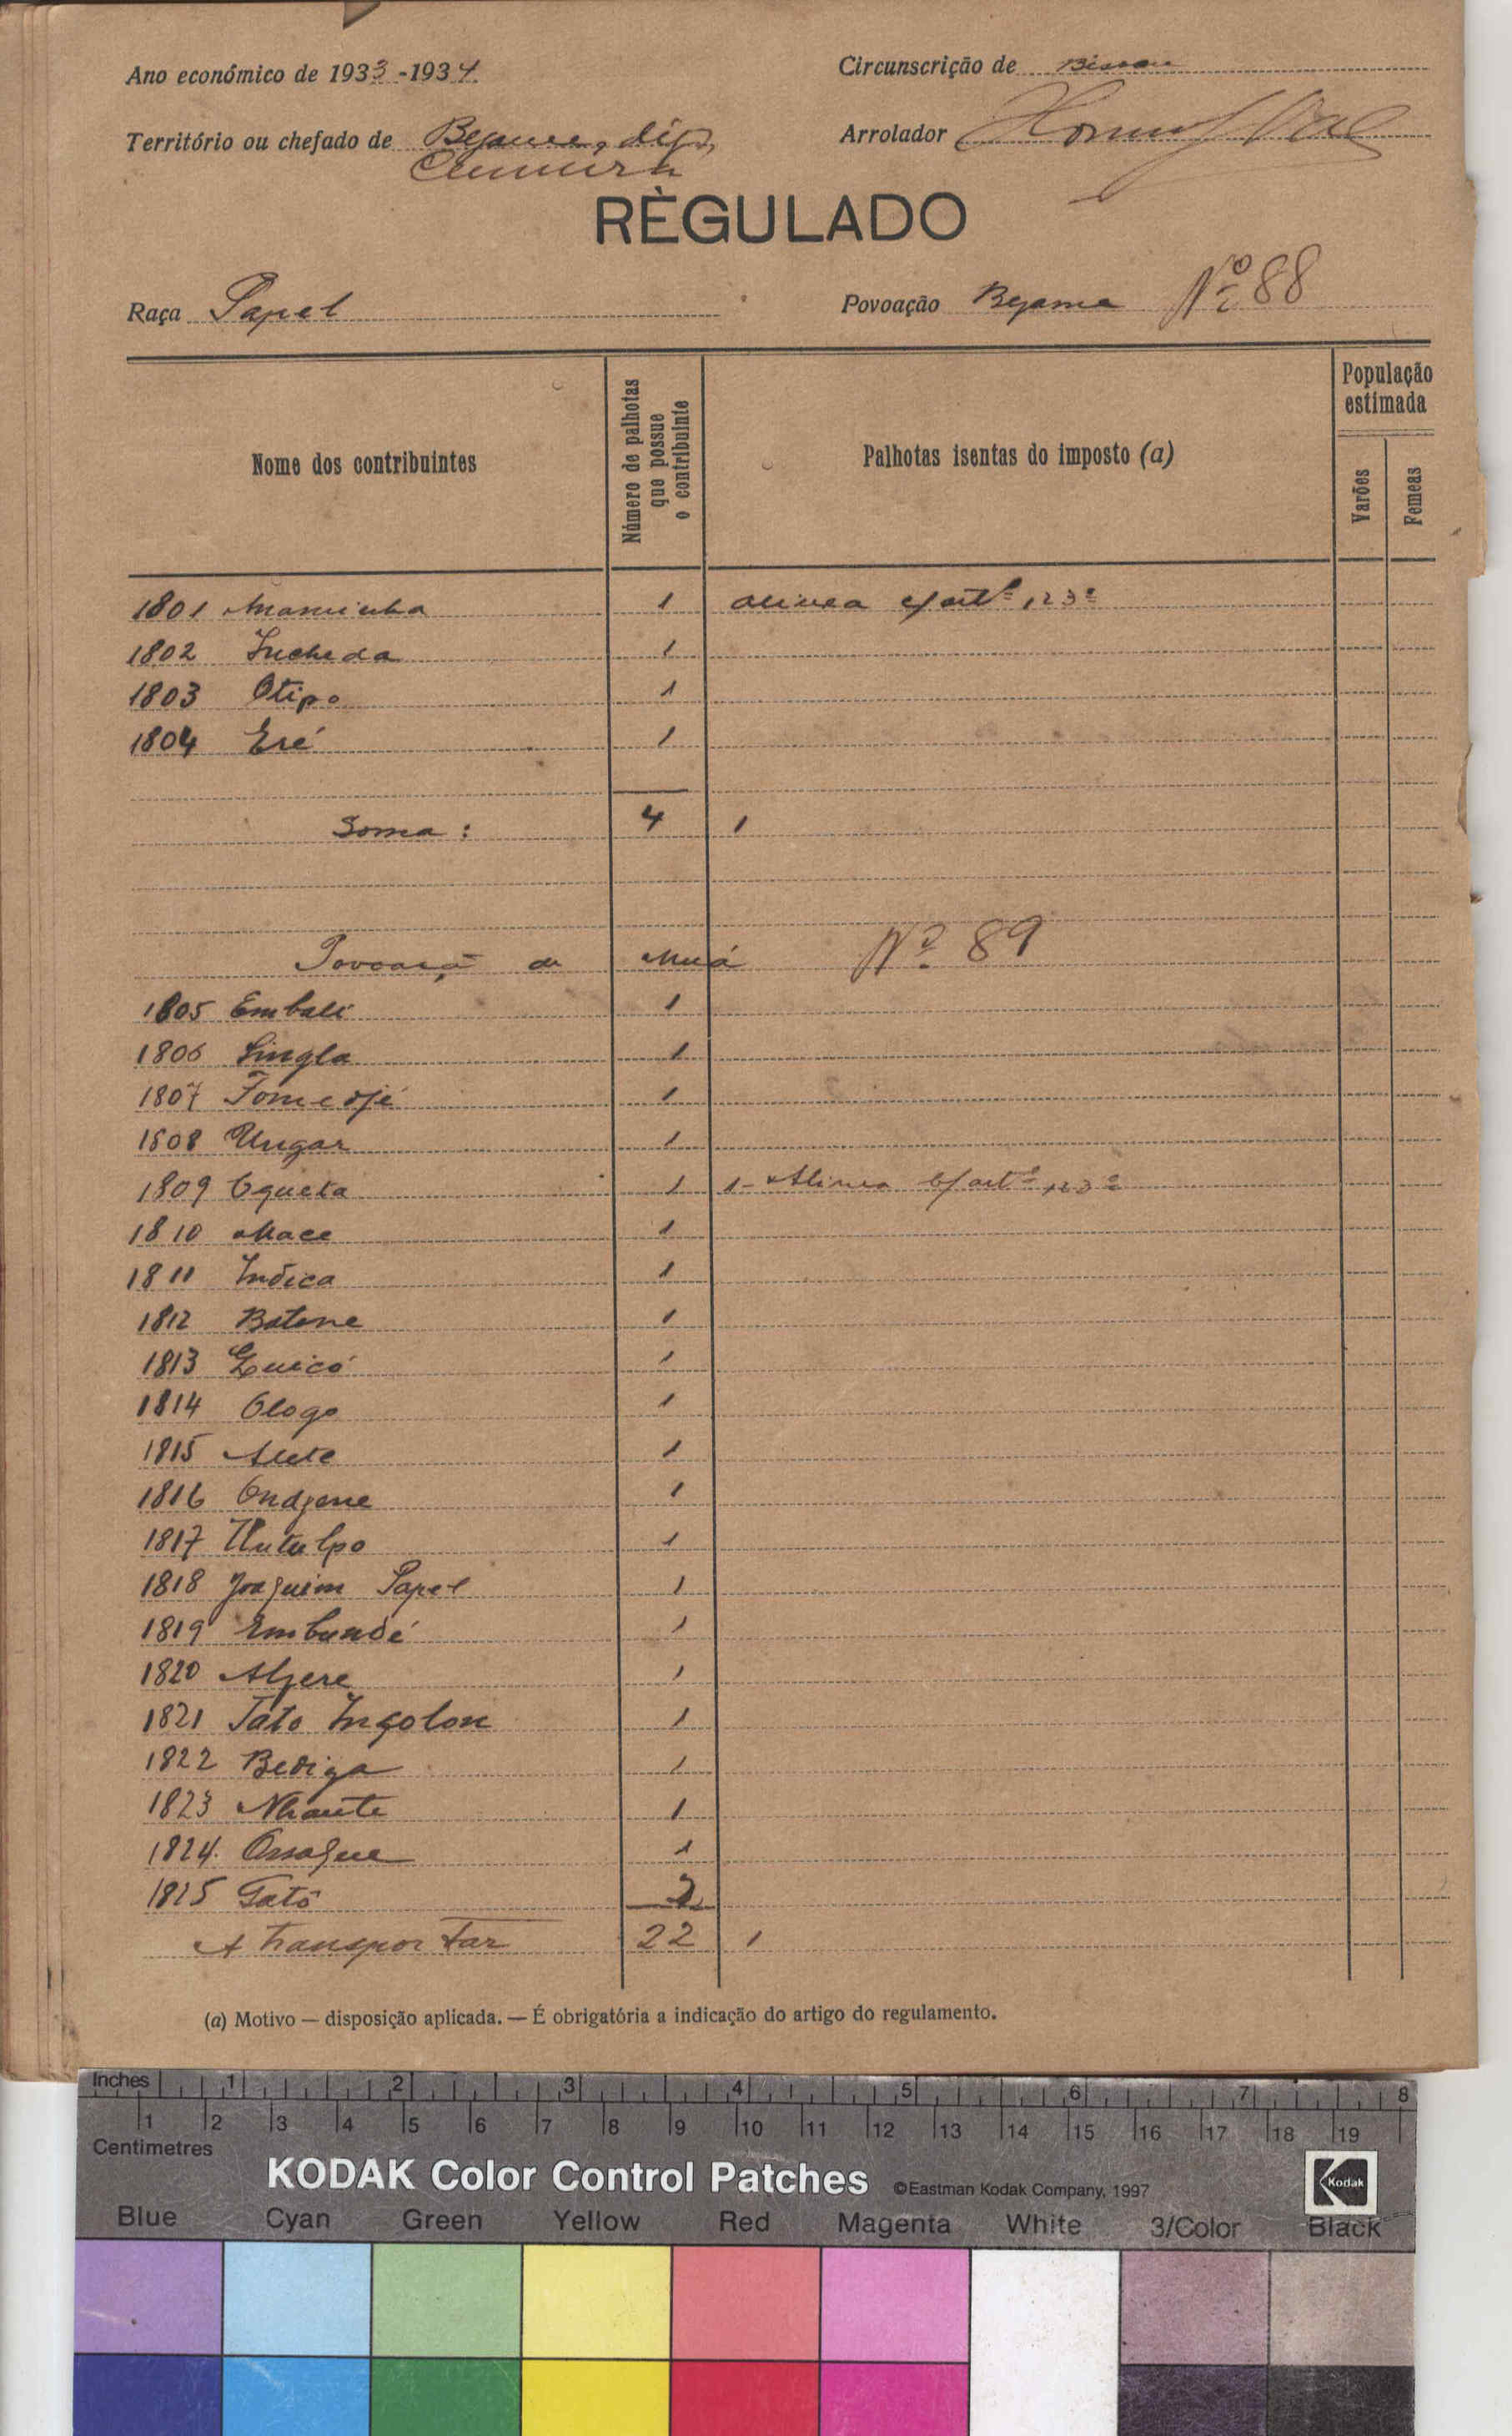 Ano económico de 1933-1934
Circunscrição de Bissau
Território ou chefado de
Arrolador
RÈGULADO
Raça Papel
Povoação Nº 88
Nome dos contribuintes
Número de palhotas que possue o contribuinte
Palhotas isentas do imposto (a)
População estimada
Varões
Femeas
1801 1 alinea c/ artº 123º
1802 Incheda 1
1803 Otipo 1
1804 Eré 1
Soma: 4 1
Povoação de Muá Nº 89
1805 Embali 1
1806 Singla 1
1807 1
1808 Ungar 1
1809 Oqueta 1 1- Alinea b/ artº 123º
1810 Mace 1
1811 Indica 1
1812 Batone 1
1813 1
1814 Ologo 1
1815 1
1816 Ondjone 1
1817 1
1818 Joaquim Papel 1
1819 Embundé 1
1820 1
1821 Tato Ingolon 1
1822 Bediga 1
1823 Nhante 1
1824 Ossague 1
1825 Tató 2
A transportar 22 1
(a) Motivo — disposição aplicada. — É obrigatória a indicação do artigo do regulamento.
Inches 1 2 3 4 5 6 7 8
1 2 3 4 5 6 7 8 9 10 11 12 13 14 15 16 17 18 19
Centimetres
KODAK Color Control Patches ©Eastman Kodak Company, 1997 Kodak
Blue Cyan Green Yellow Red Magenta White 3/Color Black